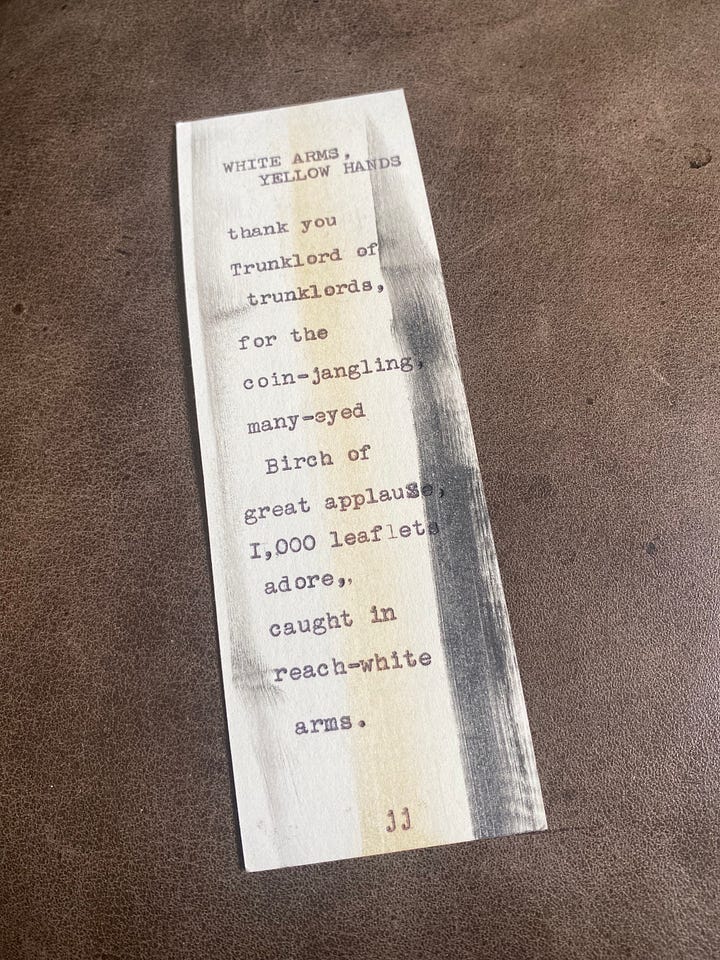 WHITE ARMS,
YELLOW HANDS
thank you
Trunklord of
trunklords,
for the
coin-jangling,
many-eyed
Birch of
great applause,
I,000 leaflets
adore,,
caught in
reach-white
arms.
jj